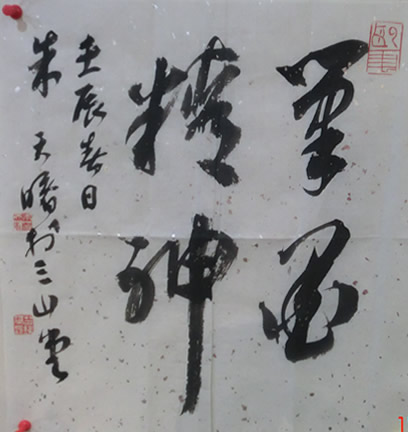 筆墨
精神
壬辰春日
朱天曙於三山堂